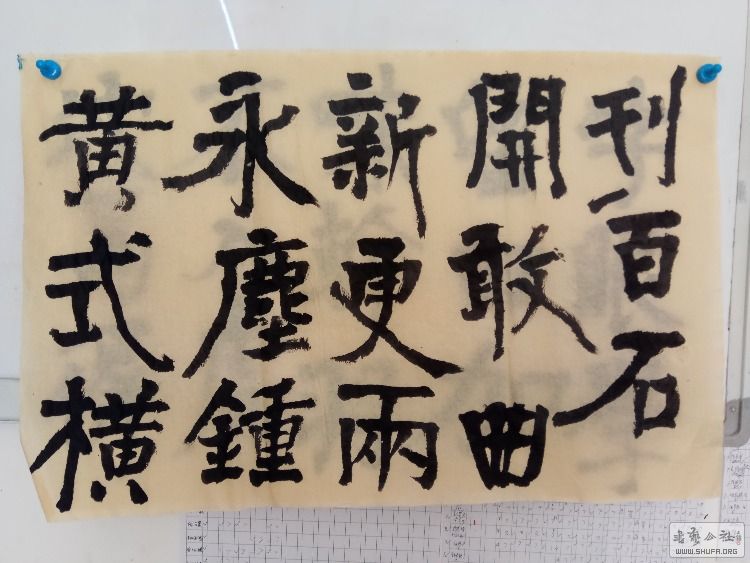 刊百石
開敢曲
新更兩
永塵鍾
黄式横
书艺公社
WWW.SHUFA.ORG